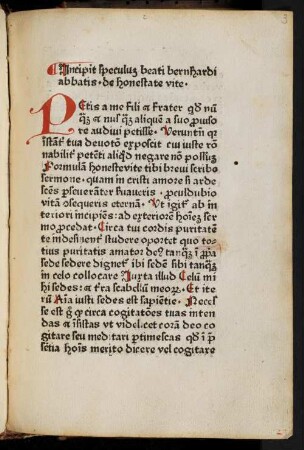 Incipit speculuʒ beati bernhardi
abbatis · de honestate vite ·
PEtis a me fili ⁊ frater qđ nū
qȝ̄ a nusqȝ̄ aliquē a suo ꝓuiso
re audiui petisse. Veruntn̄ q̄
instāt̄ tua deuotō exposcit cui iuste rō
nabilit̄ petēti aliqđ negare nō possuȝ
Formulā honeste vite tibi breui scribo
sermone · quam in cristi amore si arde
sces ꝑseuerāter suaueris · ꝓculdubio
vitā ɔsequeris eternā. Vt igit̄ ab in
teriori incipiēs: ad exteriorē hoīeȝ ser
mo ꝓcedat. Circa tui cordis puritatē
te indesinēt̄ studere oportet quo to
tius puritatis amator deꝰ tanqȝ̄ ī ꝓpa
sede sedere dignet̄ ibi sedē sibi tanqȝ̄
in celo collocare Juxta illud Celū mi
hi sedes: ⁊ t̄ra scabellū meoꝝ. Et ite
rū Aīa iusti sedes est sapiētie. Neces
se est g̊ ꝙ circa cogitatōes tuas inten
das ⁊ īsistas vt videlꝫ et corā deo co
gitare seu meditari ꝑtimescas qđ ī p̄
sētia hoīs merito dicere vel cogitare